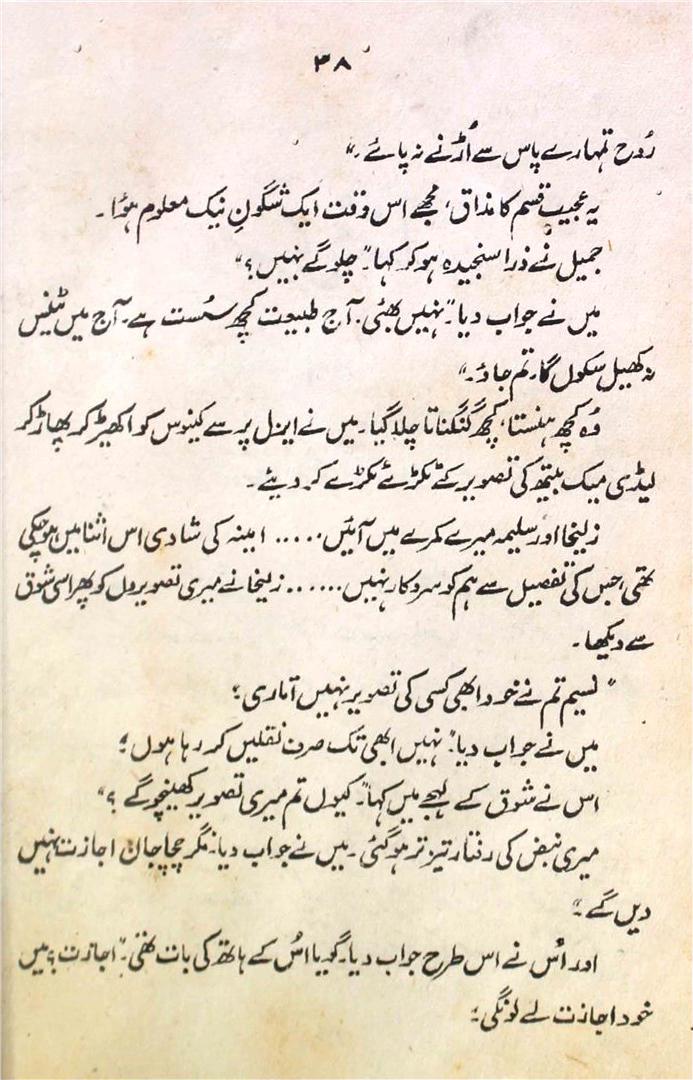 ۳۸
رُوح تمہارے پاس سے اُڑنے نہ پائے۔"
یہ عجیب قسم کا مذاق، مجھے اس وقت ایک شگونِ نیک معلوم ہؤا۔
جمیل نے ذرا سنجیدہ ہو کر کہا۔ "چلو گے نہیں؟"
میں نے جواب دیا۔ "نہیں بھئی۔ آج طبیعت کچھ سُست ہے۔ آج میں ٹینس
نہ کھیل سکوں گا۔ تم جاؤ۔"
وُہ کچھ ہنستا، کچھ گنگناتا چلا گیا۔ میں نے ایزل پر سے کینوس کو اکھیڑ کر پھاڑ کر
لیڈی میک بیتھ کی تصویر کے ٹکڑے ٹکڑے کر دیئے۔
زلیخا اور سلیمہ میرے کمرے میں آئیں ..... امینہ کی شادی اس اثنا میں ہو چکی
تھی، جس کی تفصیل سے ہم کو سروکار نہیں ...... زلیخا نے میری تصویروں کو پھر اسی شوق
سے دیکھا۔
"نسیم تم نے خود ابھی کسی کی تصویر نہیں اُتاری؟
میں نے جواب دیا۔ "نہیں ابھی تک صرف نقلیں کر رہا ہوں"؛
اس نے شوق کے لہجے میں کہا۔ "کیوں تم میری تصویر کھینچو گے؟"
میری نبض کی رفتار تیز تر ہو گئی۔ میں نے جواب دیا۔ "مگر چچا جان اجازت نہیں
دیں گے۔"
اور اُس نے اس طرح جواب دیا۔ گویا اُس کے ہاتھ کی بات تھی۔ "اجازت؟ میں
خود اجازت لے لونگی؛